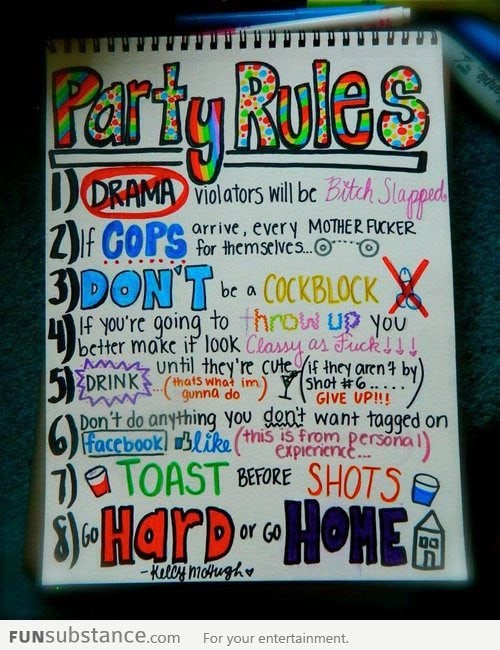 Party Rules
1) DRAMA violators will be Bitch Slapped.
2) If COPS arrive, every MOTHER FUCKER
for themselves...
3) DON'T be a COCKBLOCK
4) If you're going to throw up you
better make it look Classy as Fuck!!!
5) DRINK until they're cute (if they aren't by
...(thats what im gunna do) shot #6.....
GIVE UP!!!)
6) Don't do anything you don't want tagged on
facebook like (this is from personal
expierence...)
7) TOAST BEFORE SHOTS
8) GO HARD or GO HOME
-Kelly McHugh
FUNsubstance.com For your entertainment.